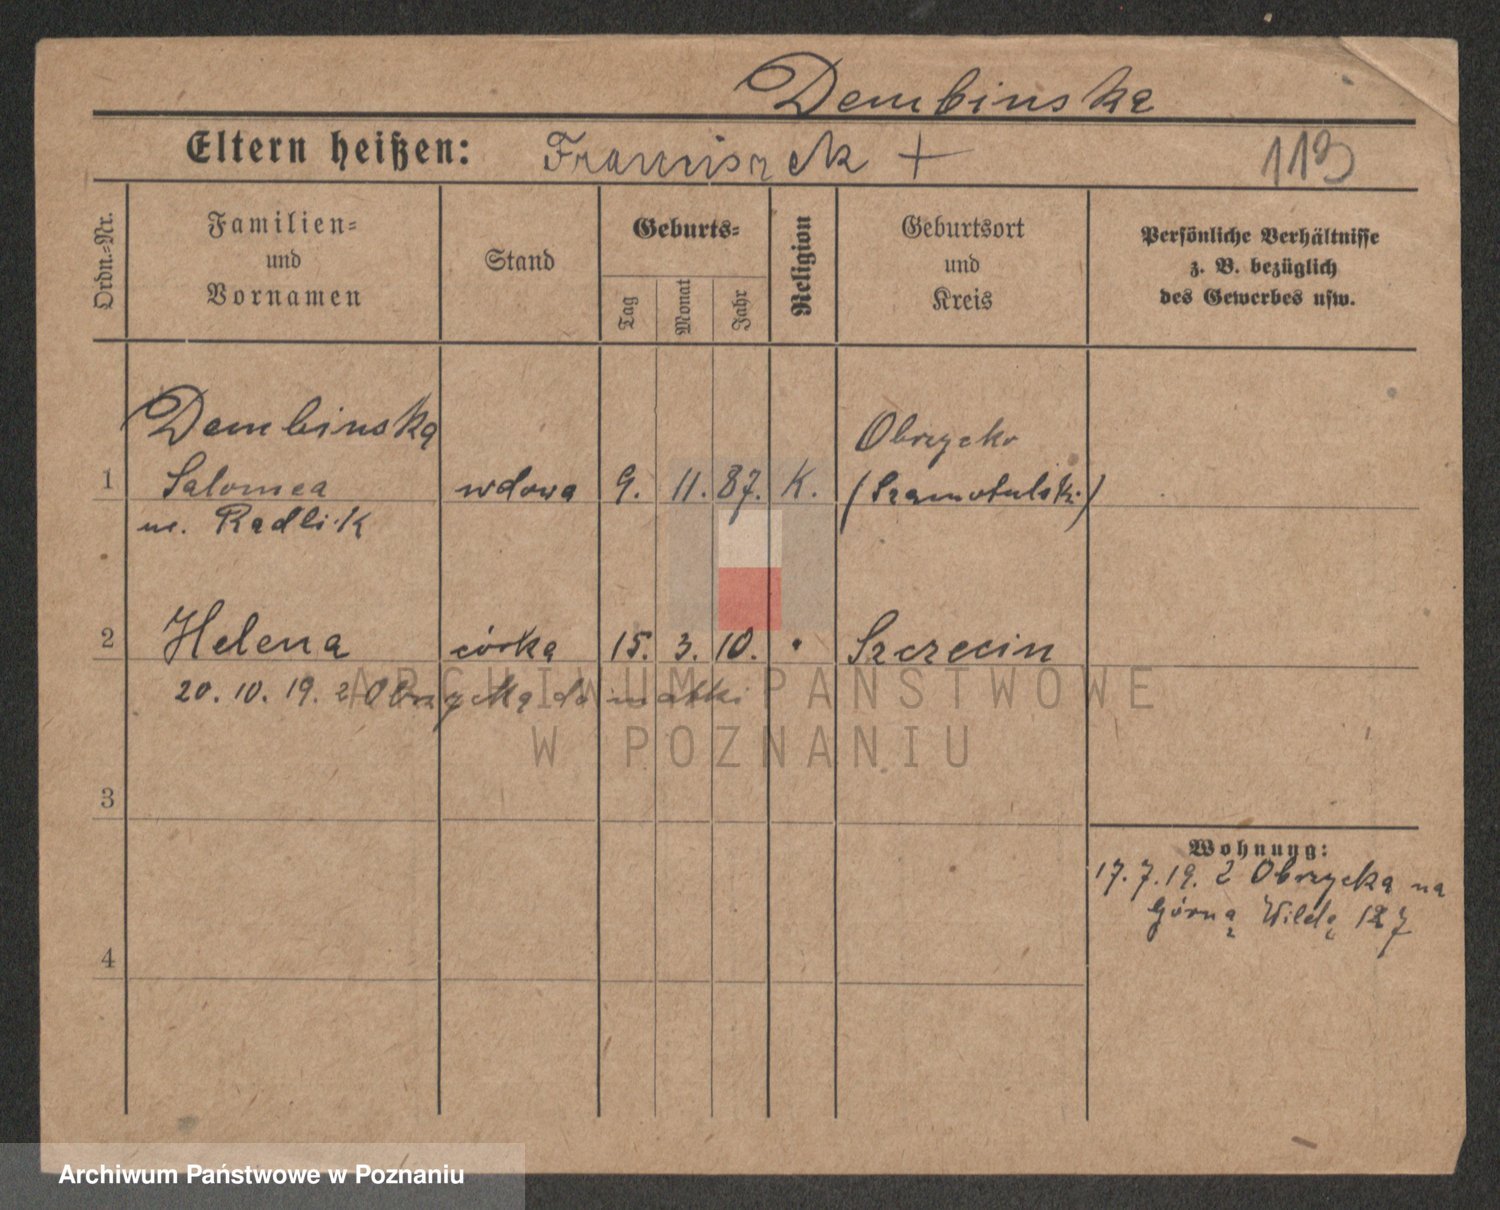 Dembinska
Eltern heißen: Franciszek +
113
Ordn.-Nr.
Familien-
und
Vornamen
Stand
Geburts-
Tag
Monat
Jahr
Religion
Geburtsort
und
Kreis
Persönliche Verhältnisse
z. B. bezüglich
des Gewerbes usw.
Dembinska Obrzycko
1 Salomea wdowa 9. 11. 87. K. (Szamotulski)
ur. Radlik
2 Helena córka 15. 3. 10. " Szczecin
20. 10. 19. z Obrzycka do matki
3
Wohnung:
17. 7. 19. z Obrzycka na
Górną Wildę 127
4
ARCHIWUM PAŃSTWOWE
W POZNANIU
Archiwum Państwowe w Poznaniu